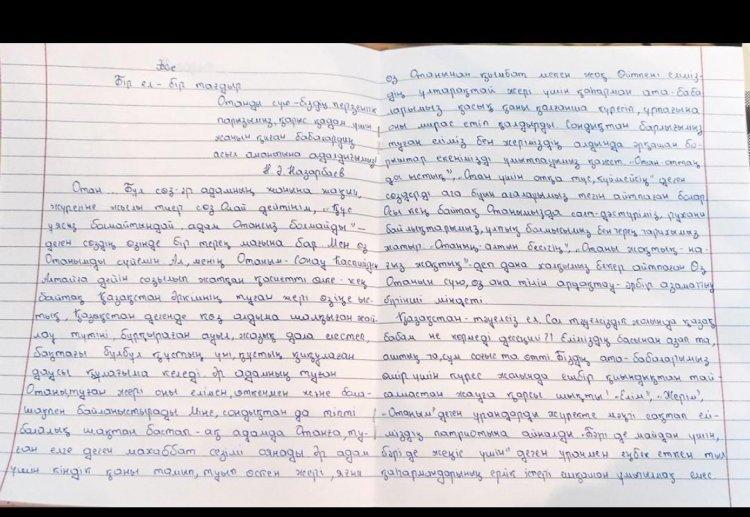 Эссе
Бір ел – бір тағдыр
Отанды сүю – біздің перзенттік
парызымыз, қарыс қадам үшін
жанын қиған бабалардың
асыл аманатына адалдығымыз
Н.Ә.Назарбаев
Отан... Бұл сөз әр адамның жанына жақын,
жүрегіне жылы тиер сөз. Олай дейтінім, „Құс
ұясыз болмайтындай, адам Отансыз болмайды" –
деген сөздің өзінде бір терең мағына бар. Мен өз
Отанымды сүйемін. Ал, менің Отаным – сонау Каспийден
Алтайға дейін созылып жатқан қасиетті өлке – кең
байтақ Қазақстан. Әркімнің туған жері өзіне ыс-
тық, Қазақстан дегенде көз алдыма шалқыған жай-
лау түтіні, бұрқыраған ауыл, жазық дала елестеп,
бақтағы бұлбұл құстың үні, құстың қиқулаған
даусы құлағыма келеді. Әр адамның туған
Отаны, туған жері оны елімен, өткенмен және бала-
шақпен байланыстырады. Міне, сондықтан да тіпті
балалық шақтан бастап-ақ адамда Отанға, ту-
ған елге деген махаббат сезімі оянады. Әр адам
үшін кіндік қаны тамып, туып өскен жері, яғни
өз Отанынан қымбат мекен жоқ. Өйткені еліміз-
дің ұлтарақтай жері үшін қаһарман ата-баба
ларымыз қасық қаны қалғанша күресіп, ұрпағына
оны мирас етіп қалдырды. Сондықтан барлығымыз
туған еліміз бен жеріміздің алдында әрқашан бо-
рыштар екенімізді ұмытпауымыз қажет. „Отан оттан
да ыстық", „Отан үшін отқа түс, күймейсің" деген
сөздерді аға буын ағаларымыз тегін айтпаған болар
Осы кең байтақ Отанымызда салт-дәстүріміз, рухани
байлықтарымыз, ұлттық болмысымыз бен терең тарихымыз
жатыр. „Отанның – алтын бесігің", „Отаны жоқтың – на-
ғыз жоқтық" – деп дана халқымыз бекер айтпаған. Өз
Отанын сүю, өз ана тілін ардақтау – әрбір азаматтың
бірінші міндеті.
Қазақстан – тәуелсіз ел. Сол тәуелсіздік жолында қазақ
бабам не көрмеді десеңші?! Еліміздің басынан азап та,
аштық та, сұм соғыс та өтті. Біздің ата-бабаларымыз
өмір үшін күрес жолында ешбір қиындықтан тай-
салмастан жауға қарсы шықты! „Елім", „Жерім",
„Отаным" деген ұрандарды жүректе мәңгі сақтап елі-
міздің патриотына айналды. „Бәрі де майдан үшін,
бәрі де жеңіс үшін" деген ұранмен еңбек еткен тыл
қаһармандарының ерлік істері ешқашан ұмытылмақ емес.